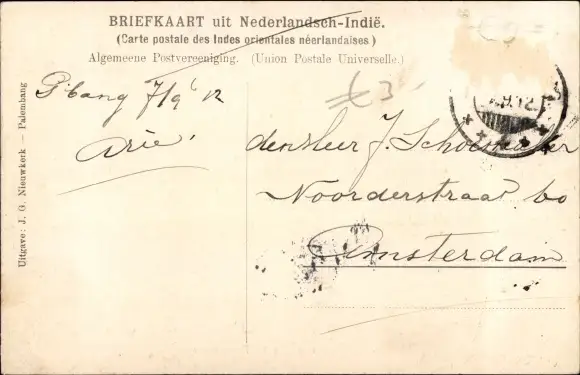 BRIEFKAART uit Nederlandsch-Indië.
(Carte postale des Indes orientales néerlandaises)
Algemeene Postvereeniging. (Union Postale Universelle.)
Uitgave: J. G. Nieuwkerk — Palembang
P'bang 7/9 '12
Arie.
£ 3
den Heer J. Schoemaker
Noorderstraat 60
Amsterdam
.9.12